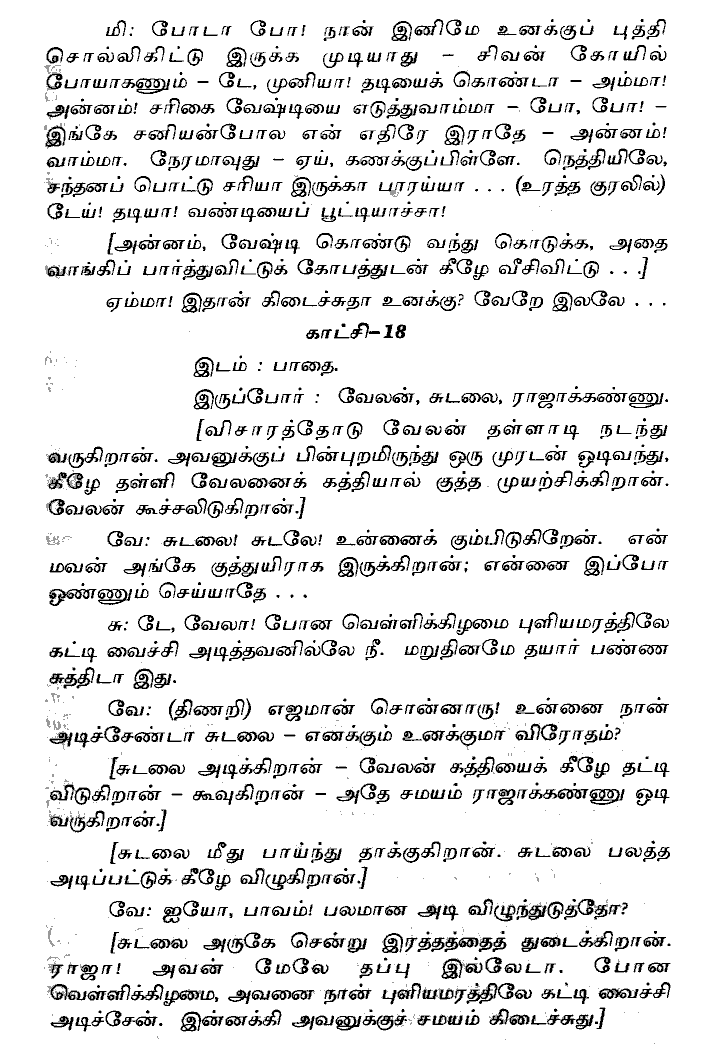 மி: போடா போ! நான் இனிமே உனக்குப் புத்தி
சொல்லிகிட்டு இருக்க முடியாது – சிவன் கோயில்
போயாகணும் – டே, முனியா! தடியைக் கொண்டா – அம்மா!
அன்னம்! சரிகை வேஷ்டியை எடுத்துவாம்மா – போ, போ! –
இங்கே சனியன்போல என் எதிரே இராதே – அன்னம்!
வாம்மா. நேரமாவுது – ஏய், கணக்குப்பிள்ளே. நெத்தியிலே,
சந்தனப் பொட்டு சரியா இருக்கா பாரய்யா . . . (உரத்த குரலில்)
டேய்! தடியா! வண்டியைப் பூட்டியாச்சா!
[அன்னம், வேஷ்டி கொண்டு வந்து கொடுக்க, அதை
வாங்கிப் பார்த்துவிட்டுக் கோபத்துடன் கீழே வீசிவிட்டு . . .]
ஏம்மா! இதான் கிடைச்சுதா உனக்கு? வேறே இலலே . . .
காட்சி–18
இடம் : பாதை.
இருப்போர் : வேலன், சுடலை, ராஜாக்கண்ணு.
[விசாரத்தோடு வேலன் தள்ளாடி நடந்து
வருகிறான். அவனுக்குப் பின்புறமிருந்து ஒரு முரடன் ஓடிவந்து,
கீழே தள்ளி வேலனைக் கத்தியால் குத்த முயற்சிக்கிறான்.
வேலன் கூச்சலிடுகிறான்.]
வே: சுடலை! சுடலே! உன்னைக் கும்பிடுகிறேன். என்
மவன் அங்கே குத்துயிராக இருக்கிறான்; என்னை இப்போ
ஒண்ணும் செய்யாதே . . .
சு: டே, வேலா! போன வெள்ளிக்கிழமை புளியமரத்திலே
கட்டி வைச்சி அடித்தவனில்லே நீ. மறுதினமே தயார் பண்ண
சுத்திடா இது.
வே: (திணறி) எஜமான் சொன்னாரு! உன்னை நான்
அடிச்சேண்டா சுடலை – எனக்கும் உனக்குமா விரோதம்?
[சுடலை அடிக்கிறான் – வேலன் கத்தியைக் கீழே தட்டி
விடுகிறான் – கூவுகிறான் – அதே சமயம் ராஜாக்கண்ணு ஓடி
வருகிறான்.]
[சுடலை மீது பாய்ந்து தாக்குகிறான். சுடலை பலத்த
அடிப்பட்டுக் கீழே விழுகிறான்.]
வே: ஐயோ, பாவம்! பலமான அடி விழுந்துடுத்தோ?
[சுடலை அருகே சென்று இரத்தத்தைத் துடைக்கிறான்.
ராஜா! அவன் மேலே தப்பு இல்லேடா. போன
வெள்ளிக்கிழமை, அவனை நான் புளியமரத்திலே கட்டி வைச்சி
அடிச்சேன். இன்னக்கி அவனுக்குச் சமயம் கிடைச்சுது.]